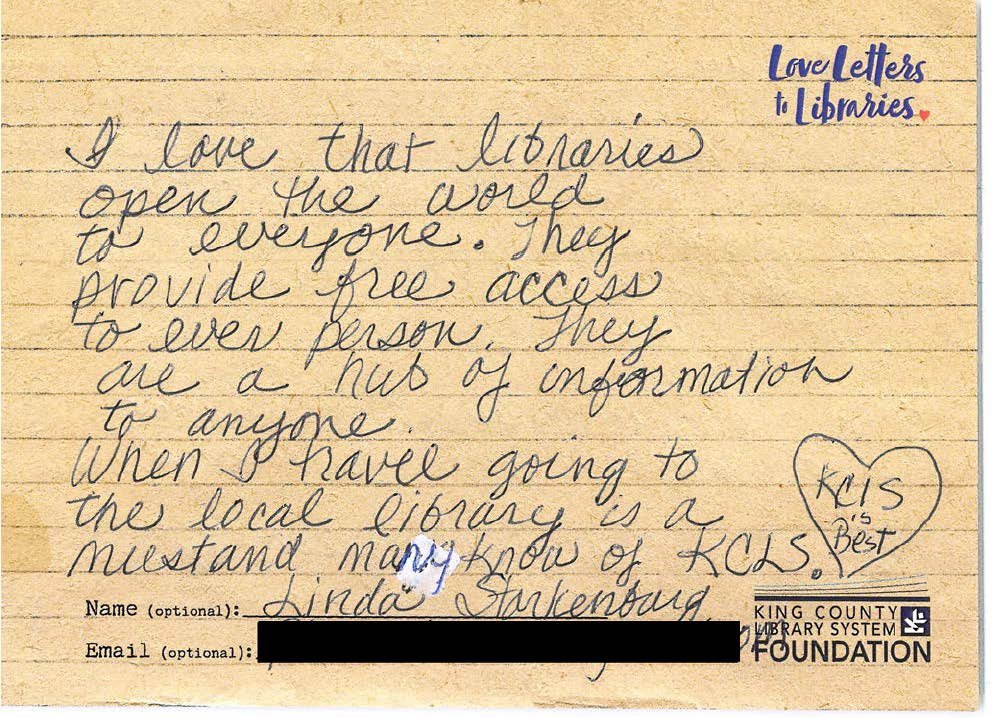 Love Letters
to Libraries
I love that libraries
open the world
to everyone. They
provide free access
to ever person. They
are a hub of information
to anyone.
When I travel going to
the local library is a
must and many know of KCLS.
KCLS
is
Best
Name (optional): Linda Starkenburg
Email (optional):
KING COUNTY
LIBRARY SYSTEM
FOUNDATION